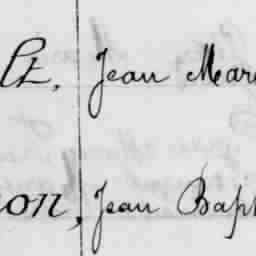 lt, Jean Mar
on, Jean Bap